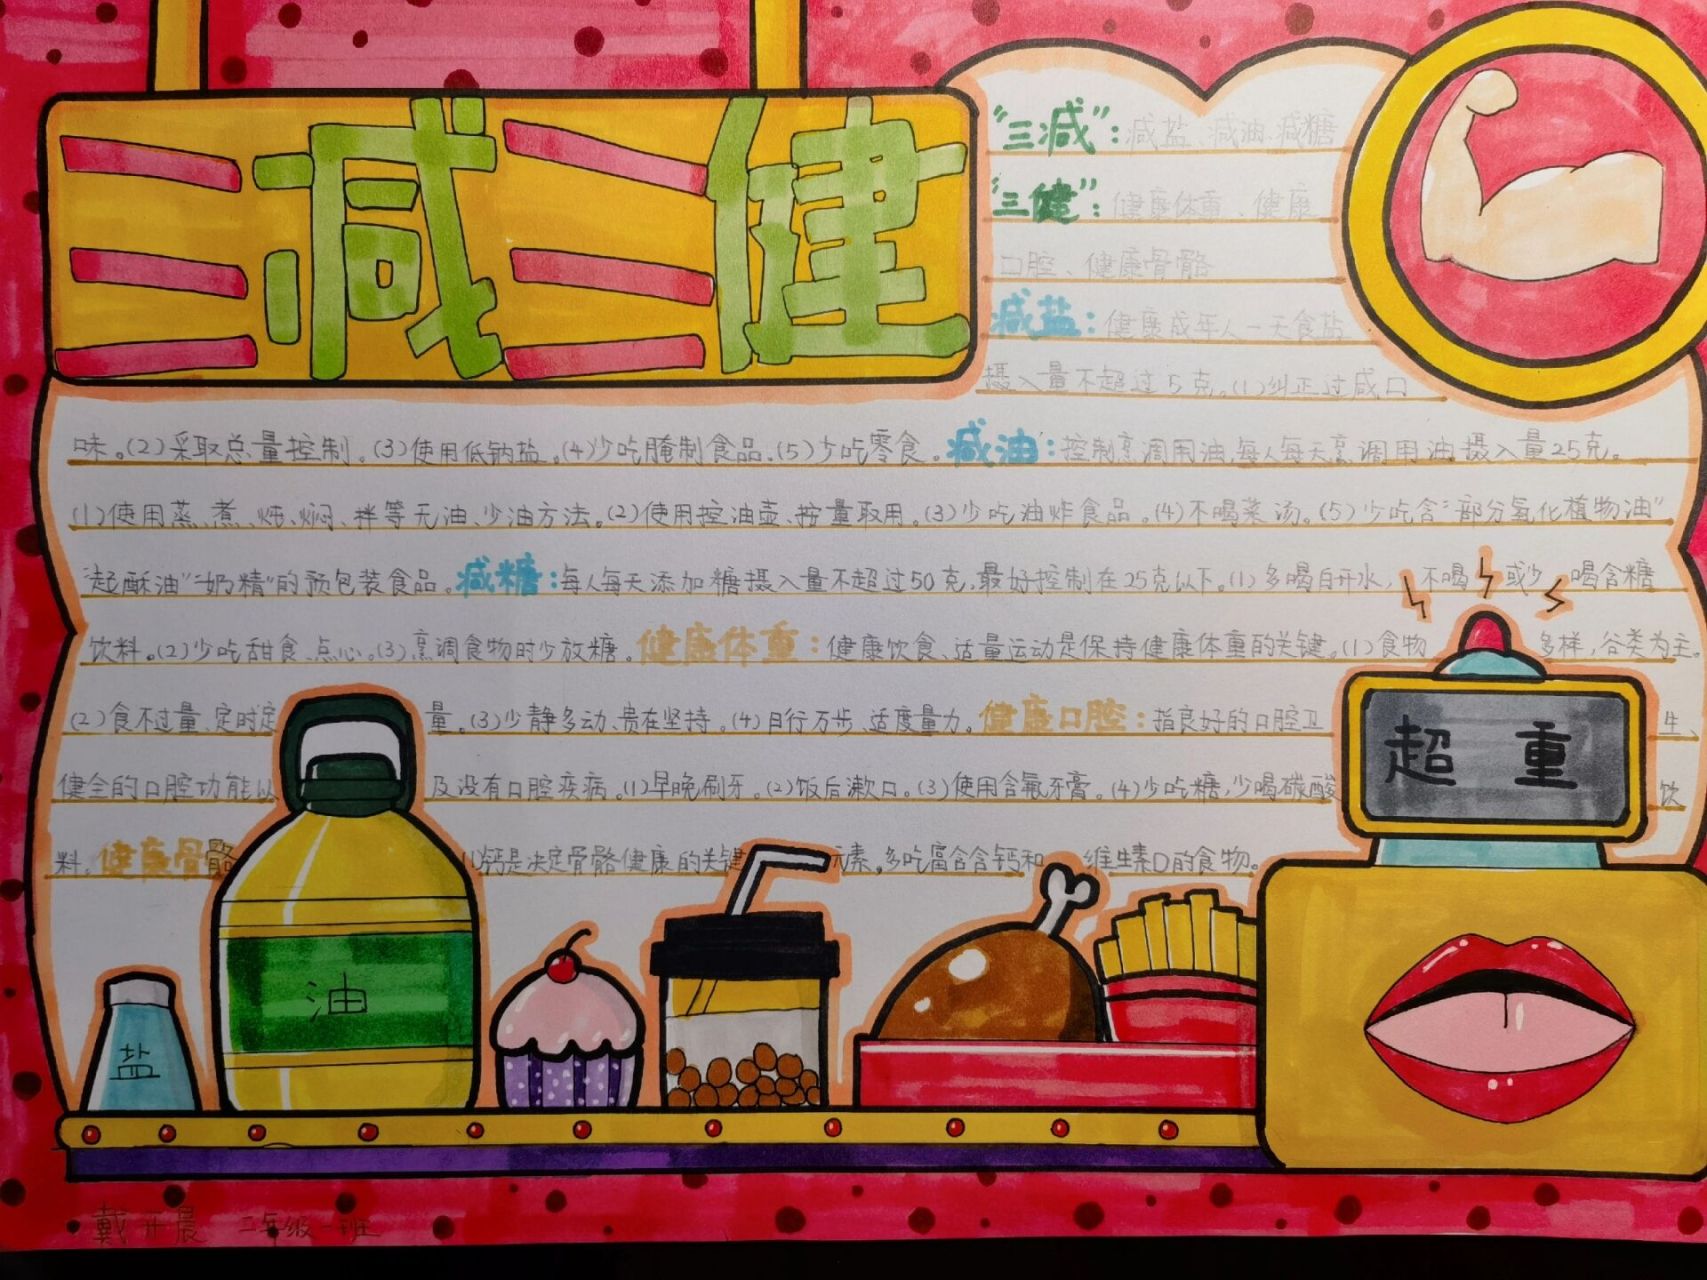 三减三健
“三减”：减盐、减油、减糖
“三健”：健康体重、健康
口腔、健康骨骼
减盐：健康成年人一天食盐
摄入量不超过5克。(1)纠正过咸口
味。(2)采取总量控制。(3)使用低钠盐。(4)少吃腌制食品。(5)少吃零食。减油：控制烹调用油，每人每天烹调用油摄入量25克。
(1)使用蒸、煮、炖、焖、拌等无油、少油方法。(2)使用控油壶、按量取用。(3)少吃油炸食品。(4)不喝菜汤。(5)少吃含“部分氢化植物油”
“起酥油”“奶精”的预包装食品。减糖：每人每天添加糖摄入量不超过50克，最好控制在25克以下。(1)多喝白开水，不喝或少喝含糖
饮料。(2)少吃甜食、点心。(3)烹调食物时少放糖。健康体重：健康饮食、适量运动是保持健康体重的关键。(1)食物多样，谷类为主。
(2)食不过量、定时定量。(3)少静多动、贵在坚持。(4)日行万步、适度量力。健康口腔：指良好的口腔卫生、
健全的口腔功能以及没有口腔疾病。(1)早晚刷牙。(2)饭后漱口。(3)使用含氟牙膏。(4)少吃糖，少喝碳酸饮
料。健康骨骼 (1)钙是决定骨骼健康的关键元素。多吃富含含钙和维生素D的食物。
超重
油
盐
戴开晨 二年级一班